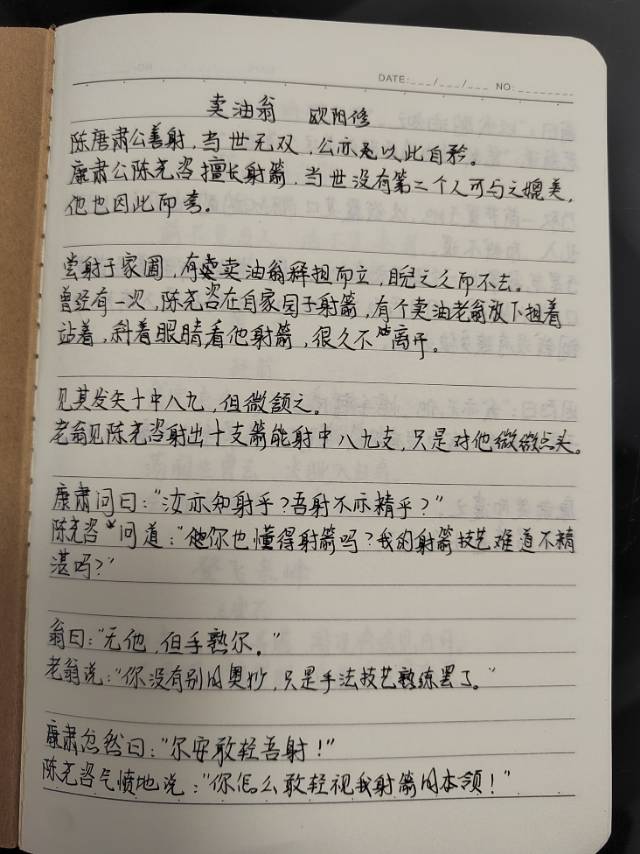 DATE:___/___/___ NO:________
卖油翁 欧阳修
陈康肃公善射，当世无双，公亦以此自矜。
康肃公陈尧咨擅长射箭，当世没有第二个人可与之媲美，
他也因此而夸。
尝射于家圃，有卖油翁释担而立，睨之久而不去。
曾经有一次，陈尧咨在自家园子射箭，有个卖油老翁放下担着
站着，斜着眼睛看他射箭，很久不离开。
见其发矢十中八九，但微颔之。
老翁见陈尧咨射出十支箭能射中八九支，只是对他微微点头。
康肃问曰：“汝亦知射乎？吾射不亦精乎？”
陈尧咨问道：“你也懂得射箭吗？我的射箭技艺难道不精
湛吗？”
翁曰：“无他，但手熟尔。”
老翁说：“你没有别的奥妙，只是手法技艺熟练罢了。”
康肃忽然曰：“尔安敢轻吾射！”
陈尧咨气愤地说：“你怎么敢轻视我射箭的本领！”